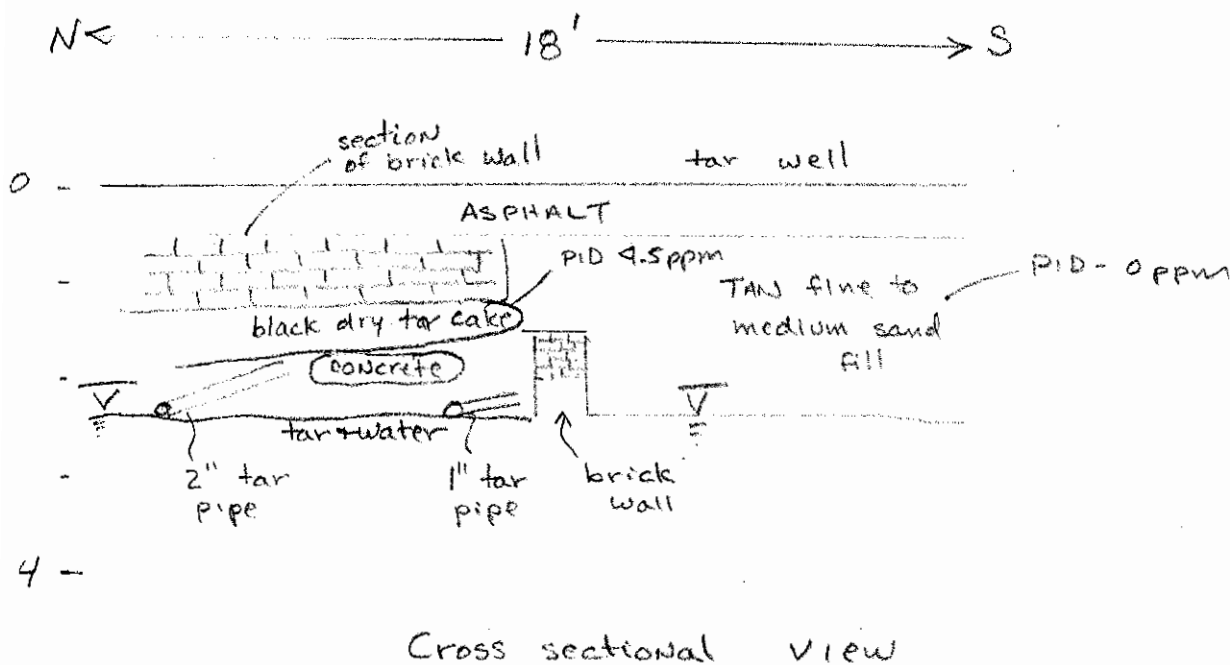 N 18' S
section
of brick wall
tar well
0 -
ASPHALT
PID 4.5ppm
PID - 0 ppm
-
TAN fine to
medium sand
fill
black dry tar cake
concrete
-
tar + water
2" tar
pipe
1" tar
pipe
brick
wall
-
4 -
Cross sectional view